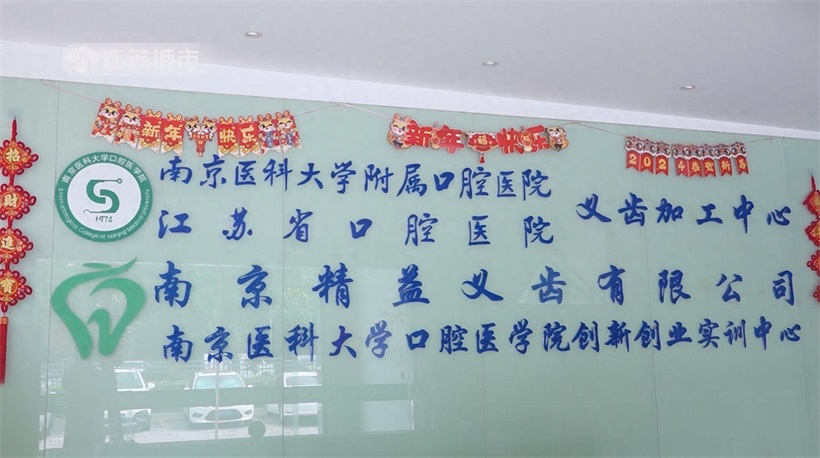 江苏城市
新年快乐
新年快乐
2024恭贺新春
招财進寶
南京医科大学口腔医学院
Stomatological College of Nanjing Medical University
1974
南京医科大学附属口腔医院
江苏省口腔医院
义齿加工中心
南京精益义齿有限公司
南京医科大学口腔医学院创新创业实训中心